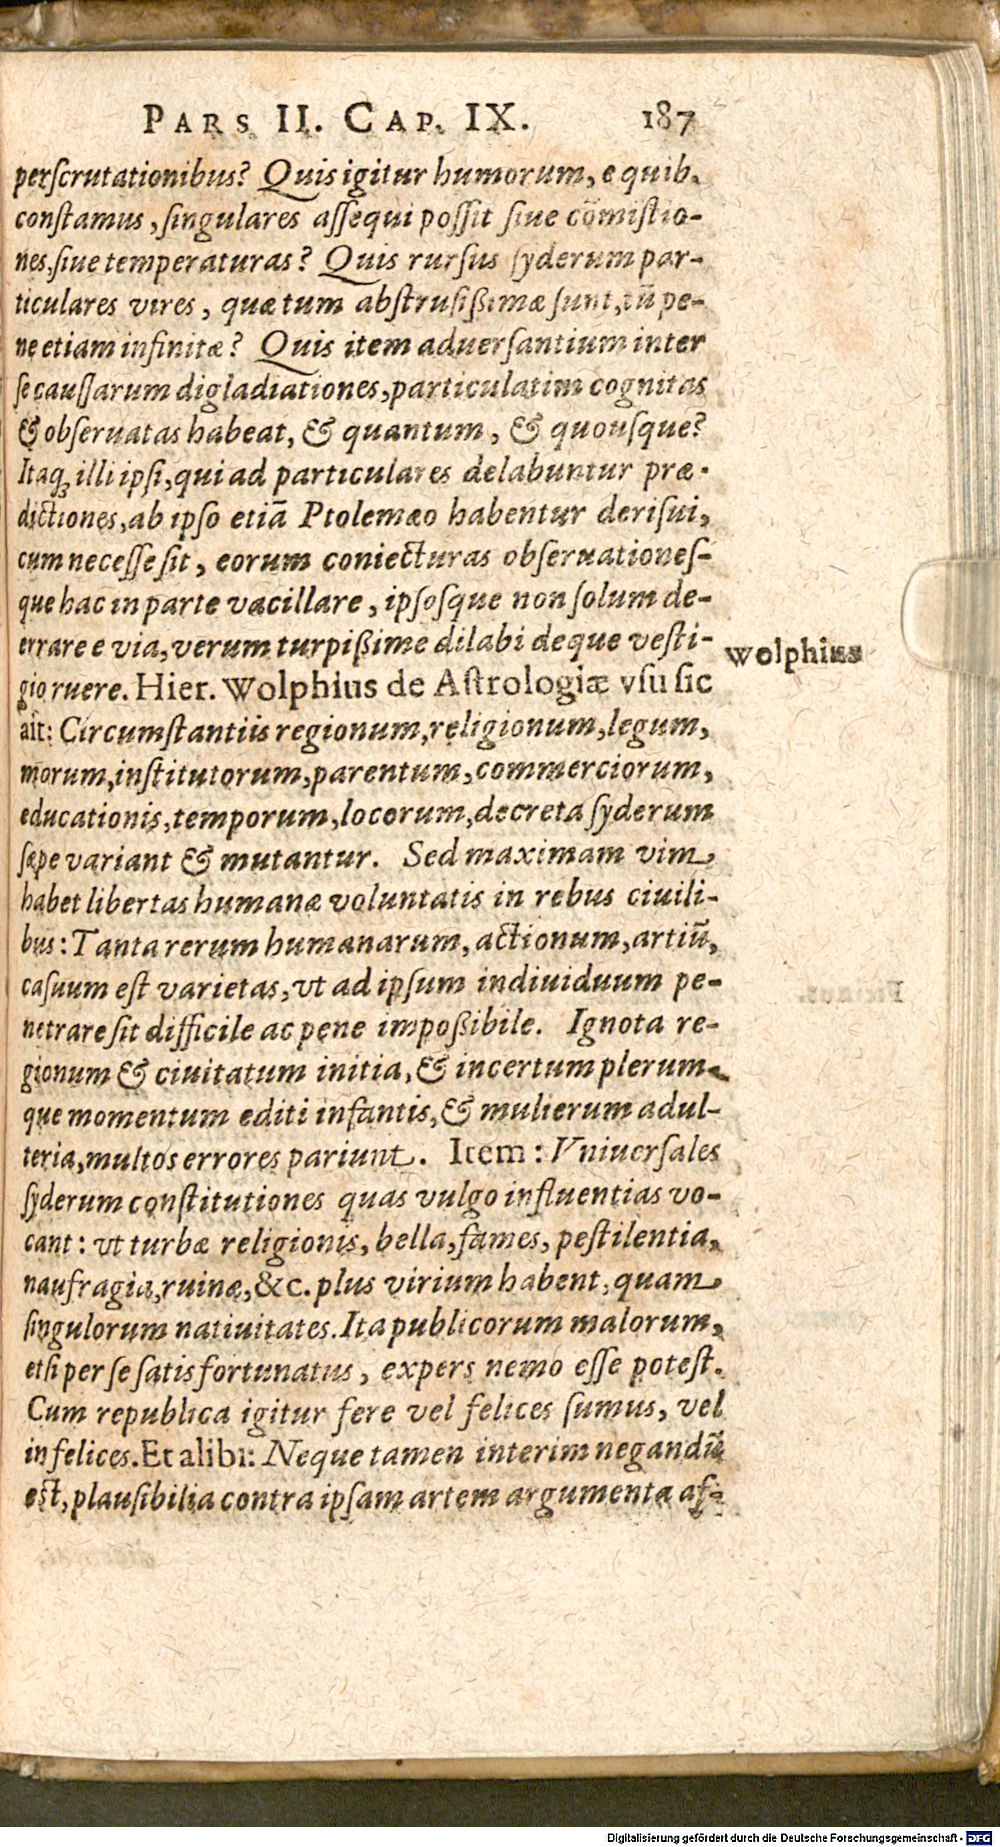 PARS II. CAP. IX. 187
perſcrutationibus? Quis igitur humorum, e quib.
conſtamus, ſingulares aſſequi poſſit ſiue cōmiſtio-
nes, ſiue temperaturas? Quis rurſus ſyderum par-
ticulares vires, quæ tum abſtruſiſſimæ ſunt, tū pe-
ne etiam infinitæ? Quis item aduerſantium inter
ſe cauſſarum digladiationes, particulatim cognitas
& obſeruatas habeat, & quantum, & quouſque?
Itaq; illi ipſi, qui ad particulares delabuntur præ-
dictiones, ab ipſo etiā Ptolemæo habentur deriſui,
cum neceſſe ſit, eorum coniecturas obſeruationeſ-
que hac in parte vacillare, ipſosque non ſolum de-
errare e via, verum turpißime dilabi deque veſti-
gio ruere. Hier. Wolphius de Aſtrologiæ vſu ſic
ait: Circumſtantiis regionum, religionum, legum,
morum, inſtitutorum, parentum, commerciorum,
educationis, temporum, locorum, decreta ſyderum
ſæpe variant & mutantur. Sed maximam vim
habet libertas humanæ voluntatis in rebus ciuili-
bus: Tanta rerum humanarum, actionum, artiū,
caſuum eſt varietas, vt ad ipſum indiuiduum pe-
netrare ſit difficile ac pene impoßibile. Ignota re-
gionum & ciuitatum initia, & incertum plerum-
que momentum editi infantis, & mulierum adul-
teria, multos errores pariunt. Item: Vniuerſales
ſyderum conſtitutiones quas vulgo influentias vo-
cant: vt turbæ religionis, bella, fames, peſtilentia,
naufragia, ruinæ, &c. plus virium habent, quam
ſingulorum natiuitates. Ita publicorum malorum,
etſi per ſe ſatis fortunatus, expers nemo eſſe poteſt.
Cum republica igitur fere vel felices ſumus, vel
infelices. Et alibi: Neque tamen interim negandū
eſt, plauſibilia contra ipſam artem argumenta af-
Wolphius
Digitalisierung gefördert durch die Deutsche Forschungsgemeinschaft - DFG